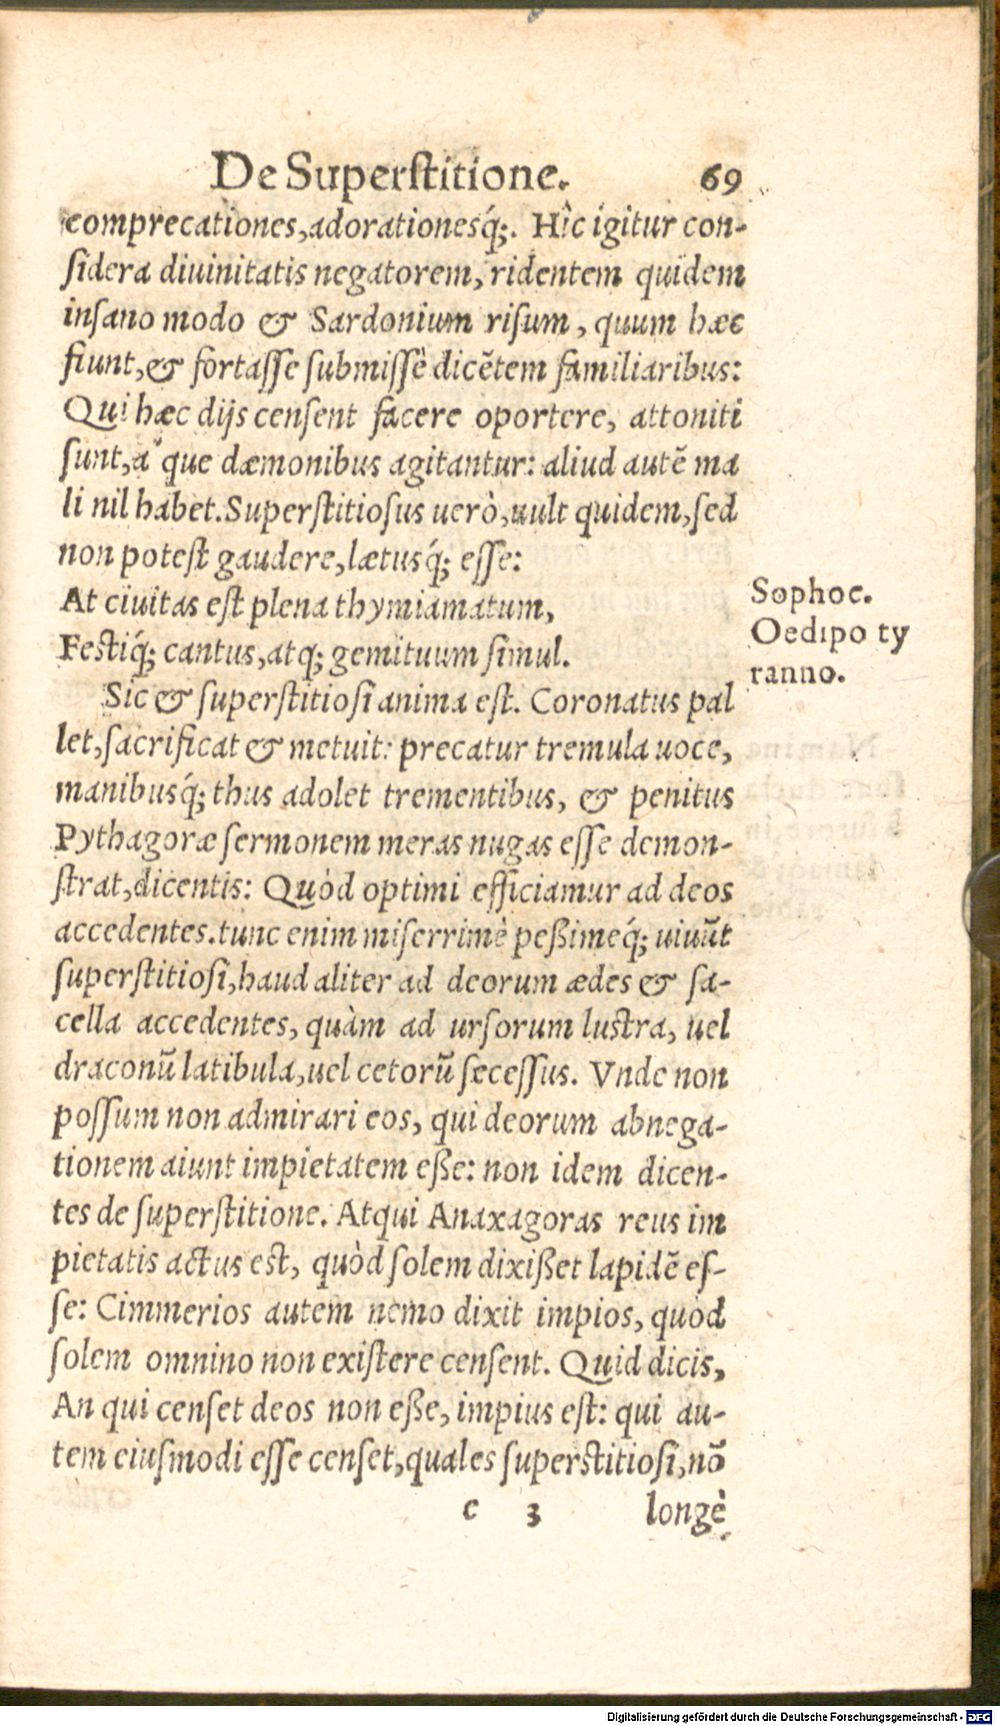 De Superstitione. 69
comprecationes, adorationesq́;. Hîc igitur con-
sidera diuinitatis negatorem, ridentem quidem
insano modo & Sardonium risum, quum hæc
fiunt, & fortasse submissè dicẽtem familiaribus:
Qui hæc dijs censent facere oportere, attoniti
sunt, à que dæmonibus agitantur: aliud autẽ ma
li nil habet. Superstitiosus uerò, uult quidem, sed
non potest gaudere, lætusq́; esse:
At ciuitas est plena thymiamatum,
Festiq́; cantus, atq; gemituum simul.
Sophoc.
Oedipo ty
ranno.
Sic & superstitiosi anima est. Coronatus pal
let, sacrificat & metuit: precatur tremula uoce,
manibusq́; thus adolet trementibus, & penitus
Pythagoræ sermonem meras nugas esse demon-
strat, dicentis: Quòd optimi efficiamur ad deos
accedentes. tunc enim miserrimè peßimeq́; uiuũt
superstitiosi, haud aliter ad deorum ædes & sa-
cella accedentes, quàm ad ursorum lustra, uel
draconũ latibula, uel cetorũ secessus. Vnde non
possum non admirari eos, qui deorum abnega-
tionem aiunt impietatem eße: non idem dicen-
tes de superstitione. Atqui Anaxagoras reus im
pietatis actus est, quòd solem dixißet lapidẽ es-
se: Cimmerios autem nemo dixit impios, quòd
solem omnino non existere censent. Quid dicis,
An qui censet deos non eße, impius est: qui au-
tem eiusmodi esse censet, quales superstitiosi, nõ
c 3 longè
Digitalisierung gefördert durch die Deutsche Forschungsgemeinschaft - DFG